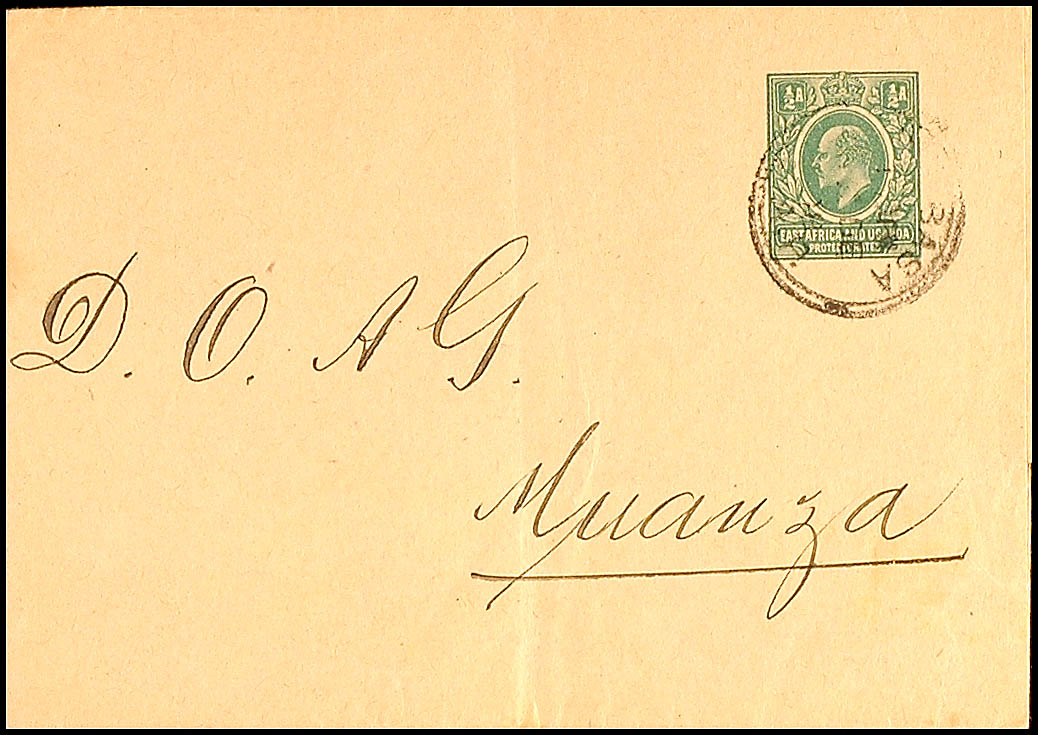 ½A ½A
EAST AFRICA AND UGANDA
PROTECTORATES
D. O. A G.
Muanza